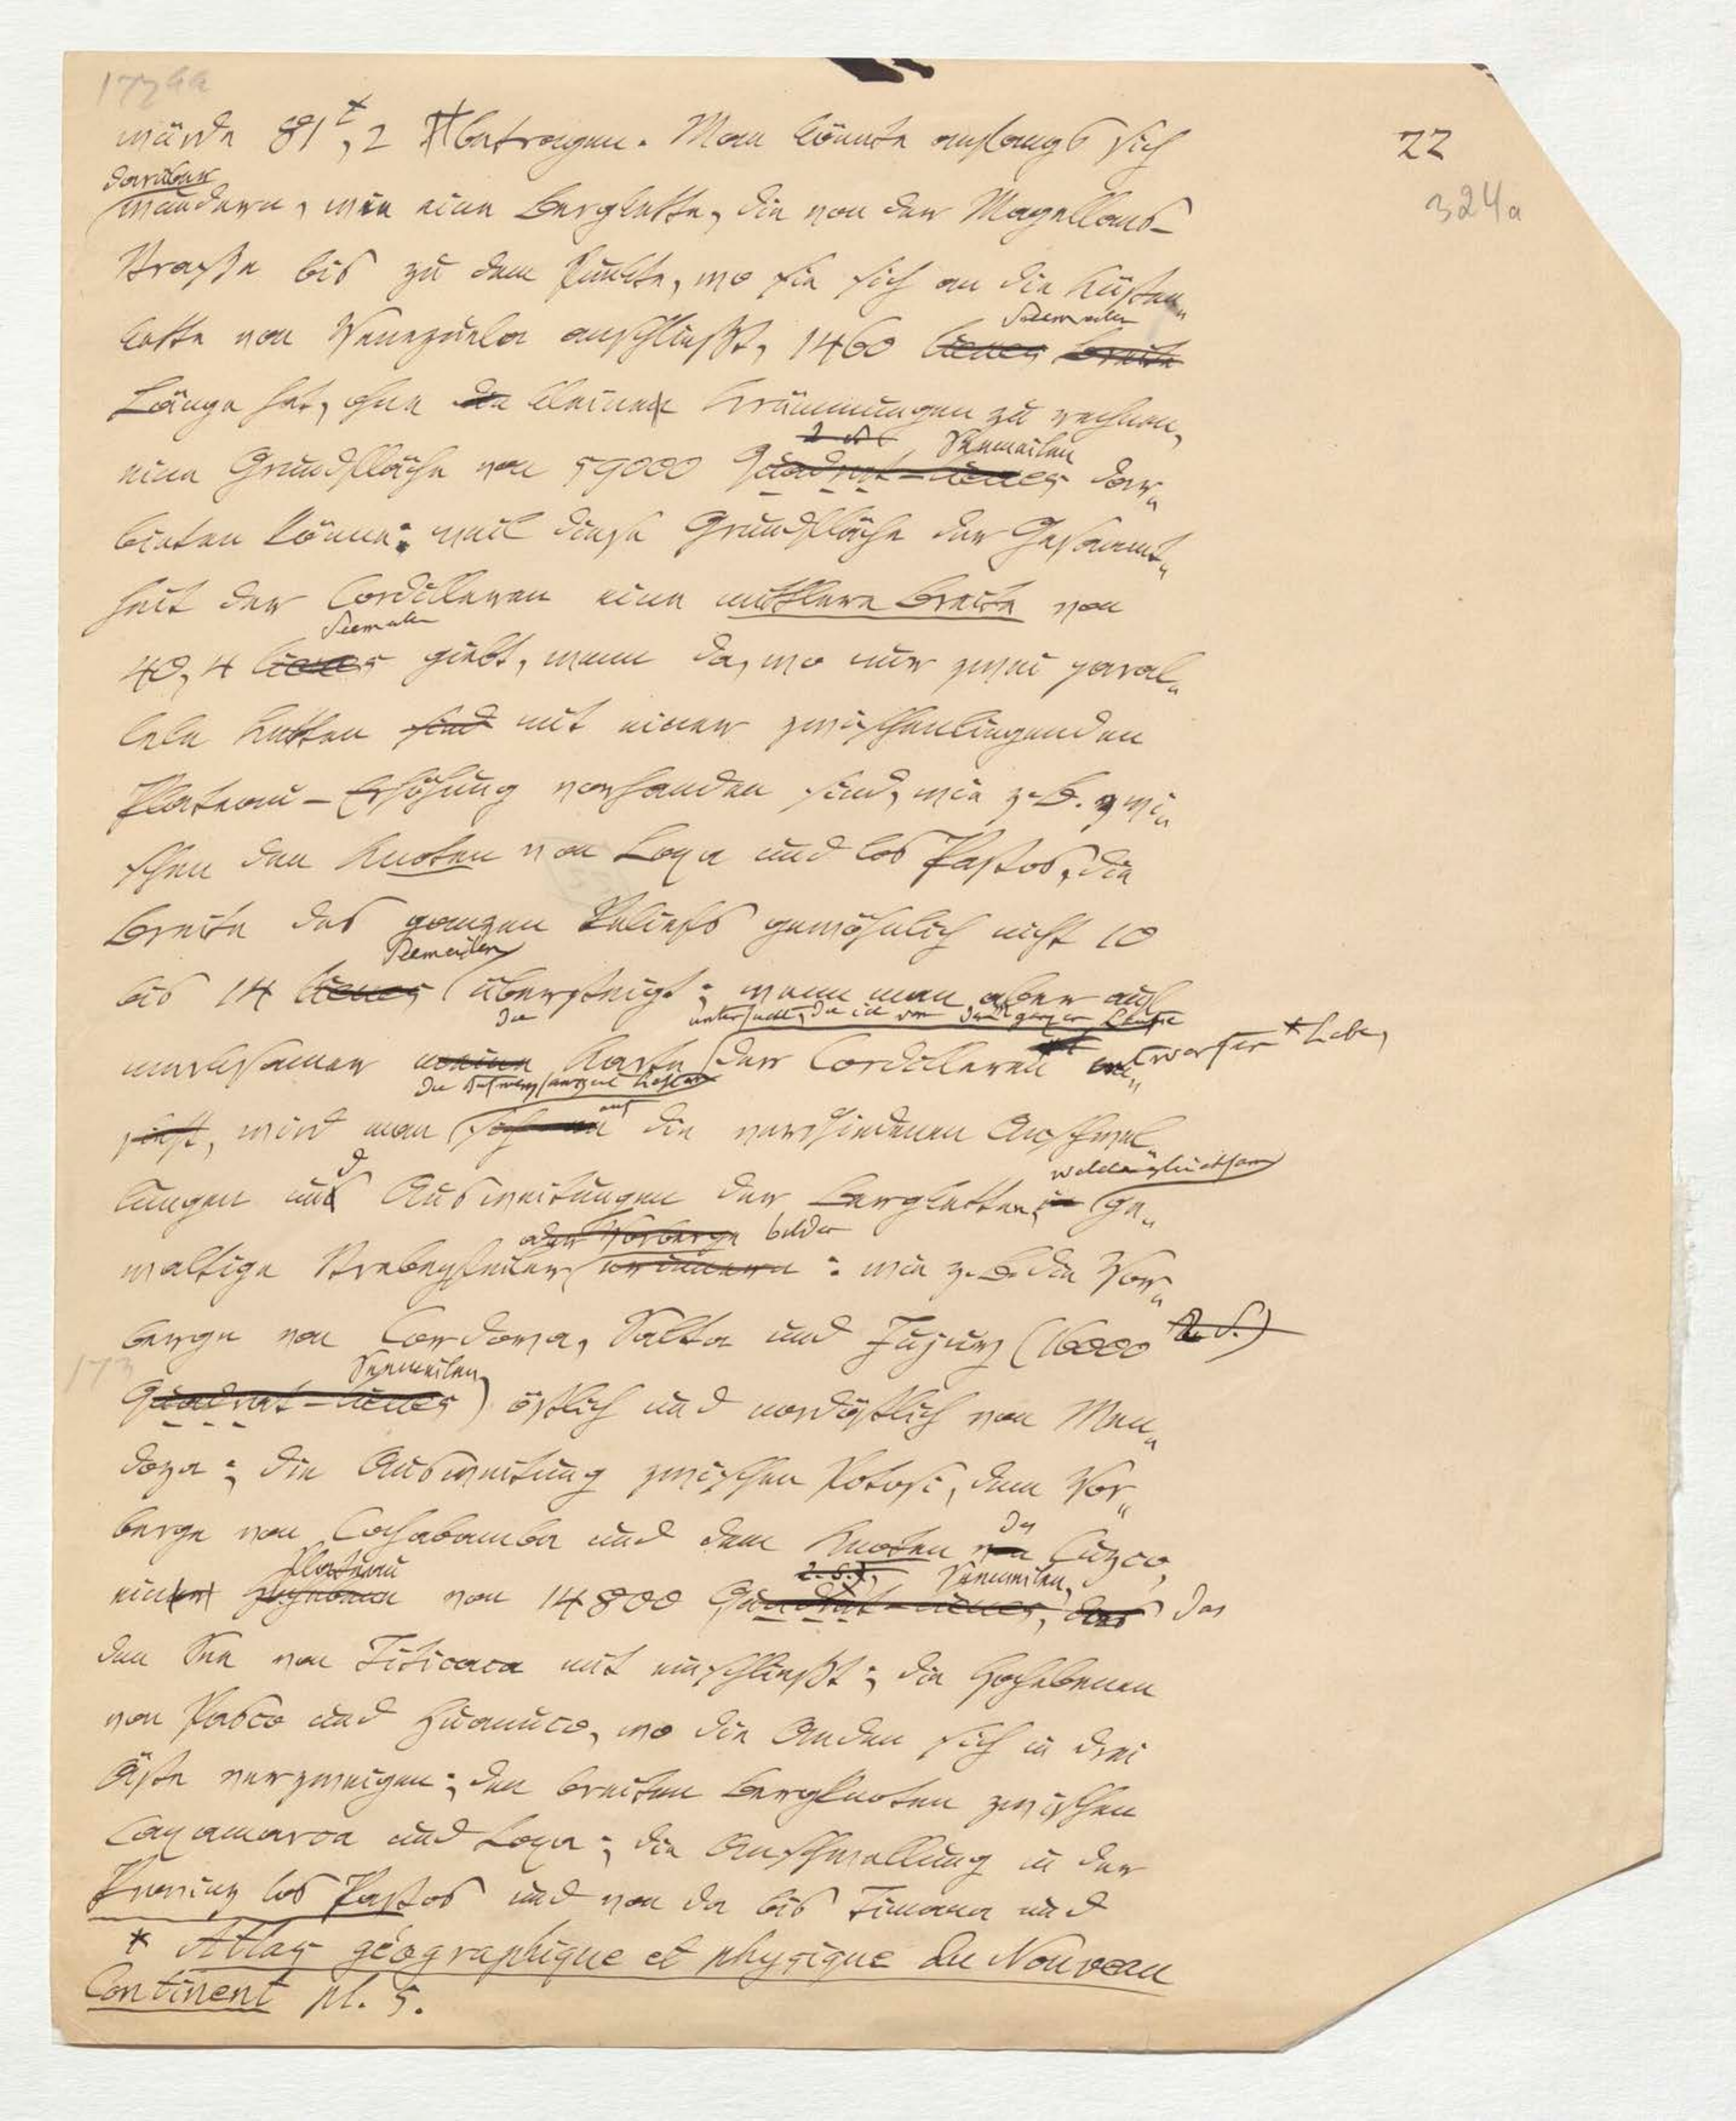 22
324a
würde 81ᵗ,2 betragen. Man könnte anfangs sich
darüber
wundern, wie eine Bergkette, die von der Magellans-
Straße bis zu dem Punkte, wo sie sich an die Küsten„
Seemeilen
kette von Venezuela anschließt, 1460 lieues Breite
Länge hat, ohne die kleinen Krümmungen zu rechnen,
Seemeilen
eine Grundfläche von 59000 Quadrat-lieues dar„
bieten könne: weil diese Grundfläche der Gesammt„
heit der Cordilleren eine mittlere Breite von
Seemeilen
40,4 lieues giebt, wenn da, wo nur zwei paral„
lele Ketten sind mit einer zwischenliegenden
Plateau-Erhöhung vorhanden sind, wie z. B. zwi„
schen den Knoten von Loxa und los Pastos, die
Breite des ganzen Reliefs gewöhnlich nicht 10
Seemeilen
bis 14 lieues übersteigt; wenn man aber auf„
die untersucht, die ich von der ganzen Kette
merksamer meine Karte der Cordilleren entworfen * habe,
auf
sieht, wird man sich an die verschiedenen Anschwel„
d
lungen und Ausweitungen der Bergketten, welche gleichsam ge„
oder Vorberge bilden
waltige Strebepfeiler erinnern: wie z. B. die Vor„
berge von Cordova, Salta und Jujuy (16000
173
Seemeilen
Quadrat-lieues) östlich und nordöstlich von Men„
doza; die Ausweitung zwischen Potosi, dem Vor„
berge von Cochabamba und dem Knoten von Cuzco,
Plateau Seemeilen,
ein von 14800 Quadrat-lieues, das das
den See von Titicaca mit einschließt; die Hochebenen
von Pasco und Huanuco, wo die Anden sich in drei
Äste verzweigen; den breiten Bergknoten zwischen
Caxamarca und Loxa; die Anschwellung in der
Provinz los Pastos und von da bis Timana und
* Atlas géographique et physique du Nouveau
Continent pl. 5.